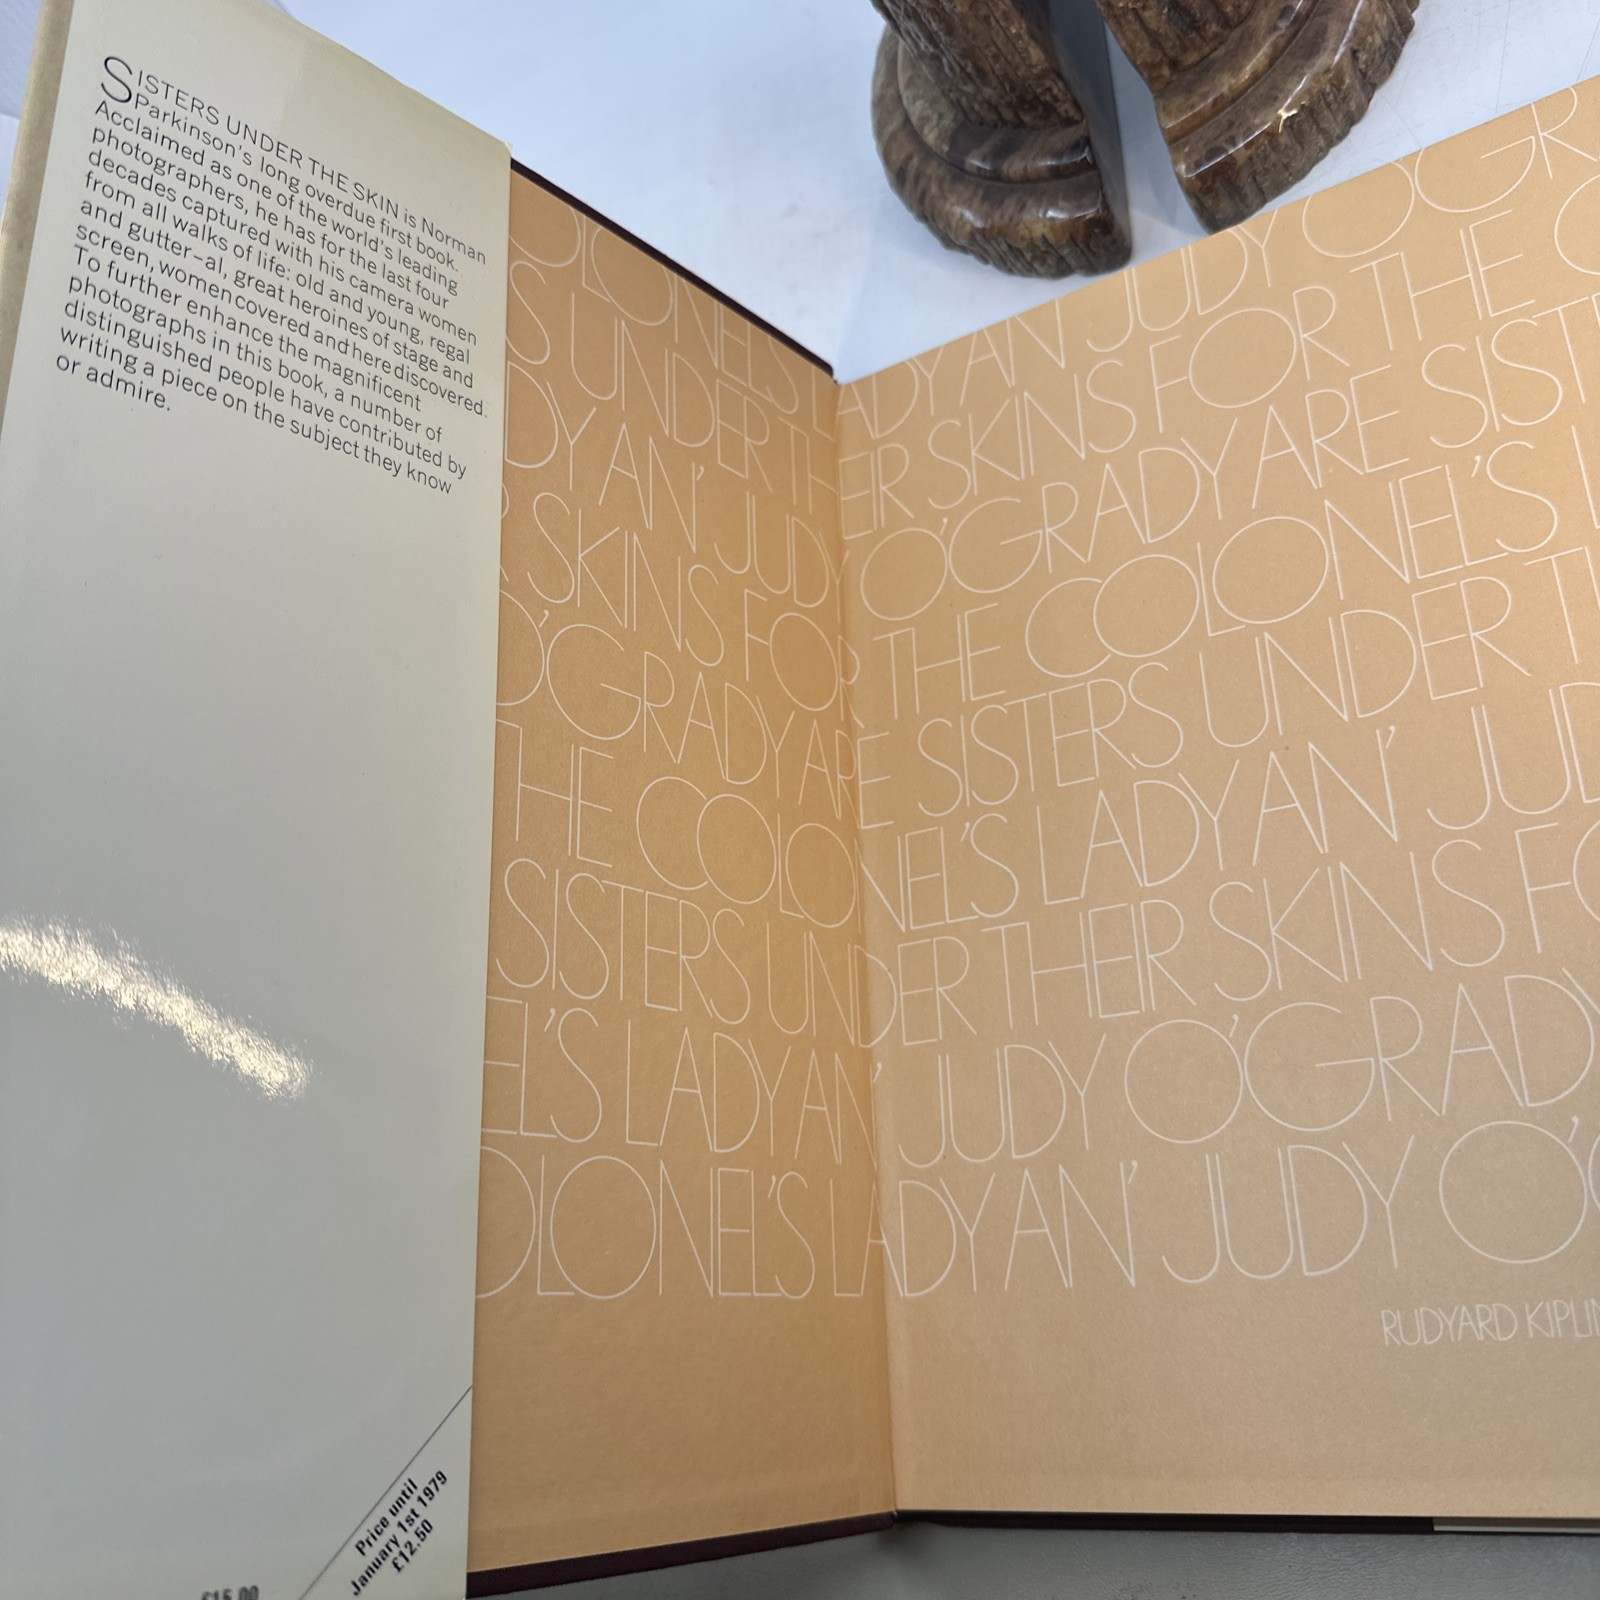 SISTERS UNDER THE SKIN is Norman
Parkinson's long overdue first book.
Acclaimed as one of the world's leading
photographers, he has for the last four
decades captured with his camera women
from all walks of life: old and young, regal
and gutter-al, great heroines of stage and
screen, women covered and here discovered.
To further enhance the magnificent
photographs in this book, a number of
distinguished people have contributed by
writing a piece on the subject they know
or admire.
Price until
January 1st 1979
£12.50
£15.00
LADY AN' JUDY O'GR
S UNDER THEIR SKINS FOR THE
DY AN' JUDY O'GRADY ARE SIST
SKINS FOR THE COLONEL'S L
O'GRADY ARE SISTERS UNDER
THE COLONEL'S LADY AN' JUD
SISTERS UNDER THEIR SKINS FO
EL'S LADY AN' JUDY O'GRADY
OLONEL'S LADY AN' JUDY O'G
RUDYARD KIPLIN